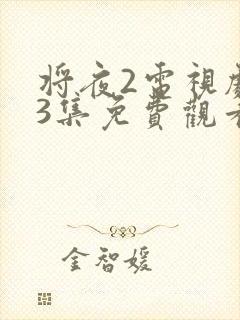 将夜2電視劇
3集免費觀看
金智媛